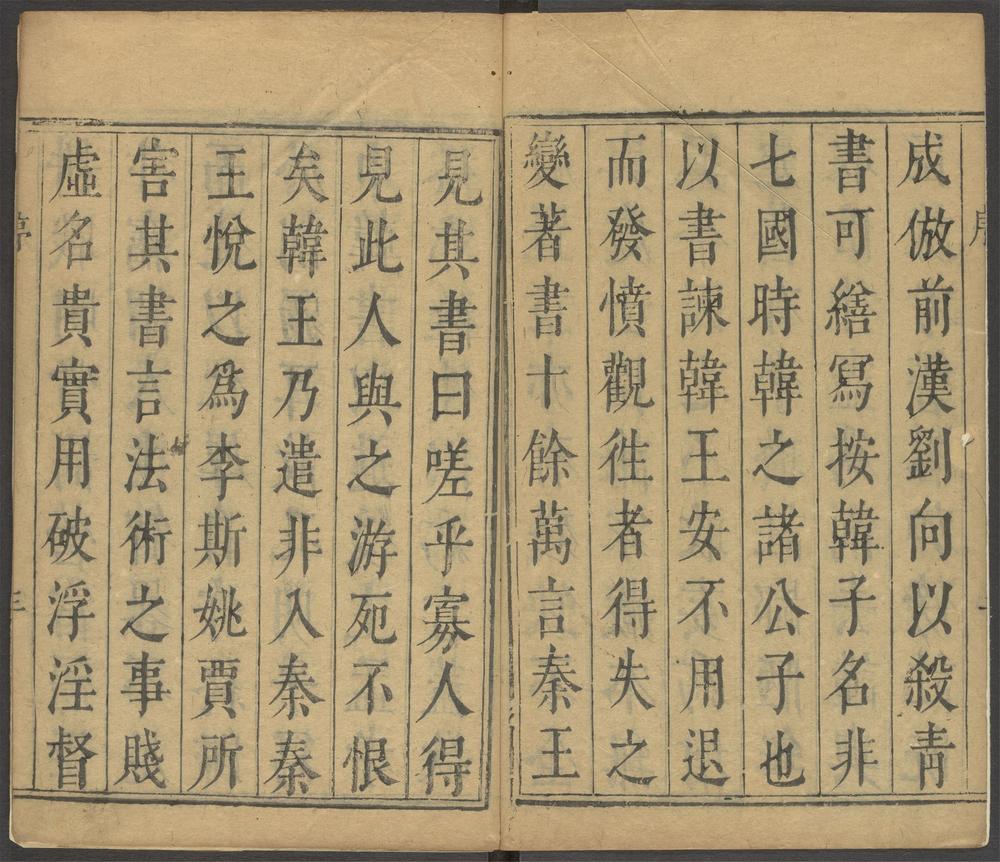 成倣前漢劉向以殺青
書可繕寫按韓子名非
七國時韓之諸公子也
以書諫韓王安不用退
而發憤觀徃者得失之
變著書十餘萬言秦王
見其書曰嗟乎寡人得
見此人與之游死不恨
矣韓王乃遣非入秦秦
王悅之爲李斯姚賈所
害其書言法術之事賤
虛名貴實用破浮淫督